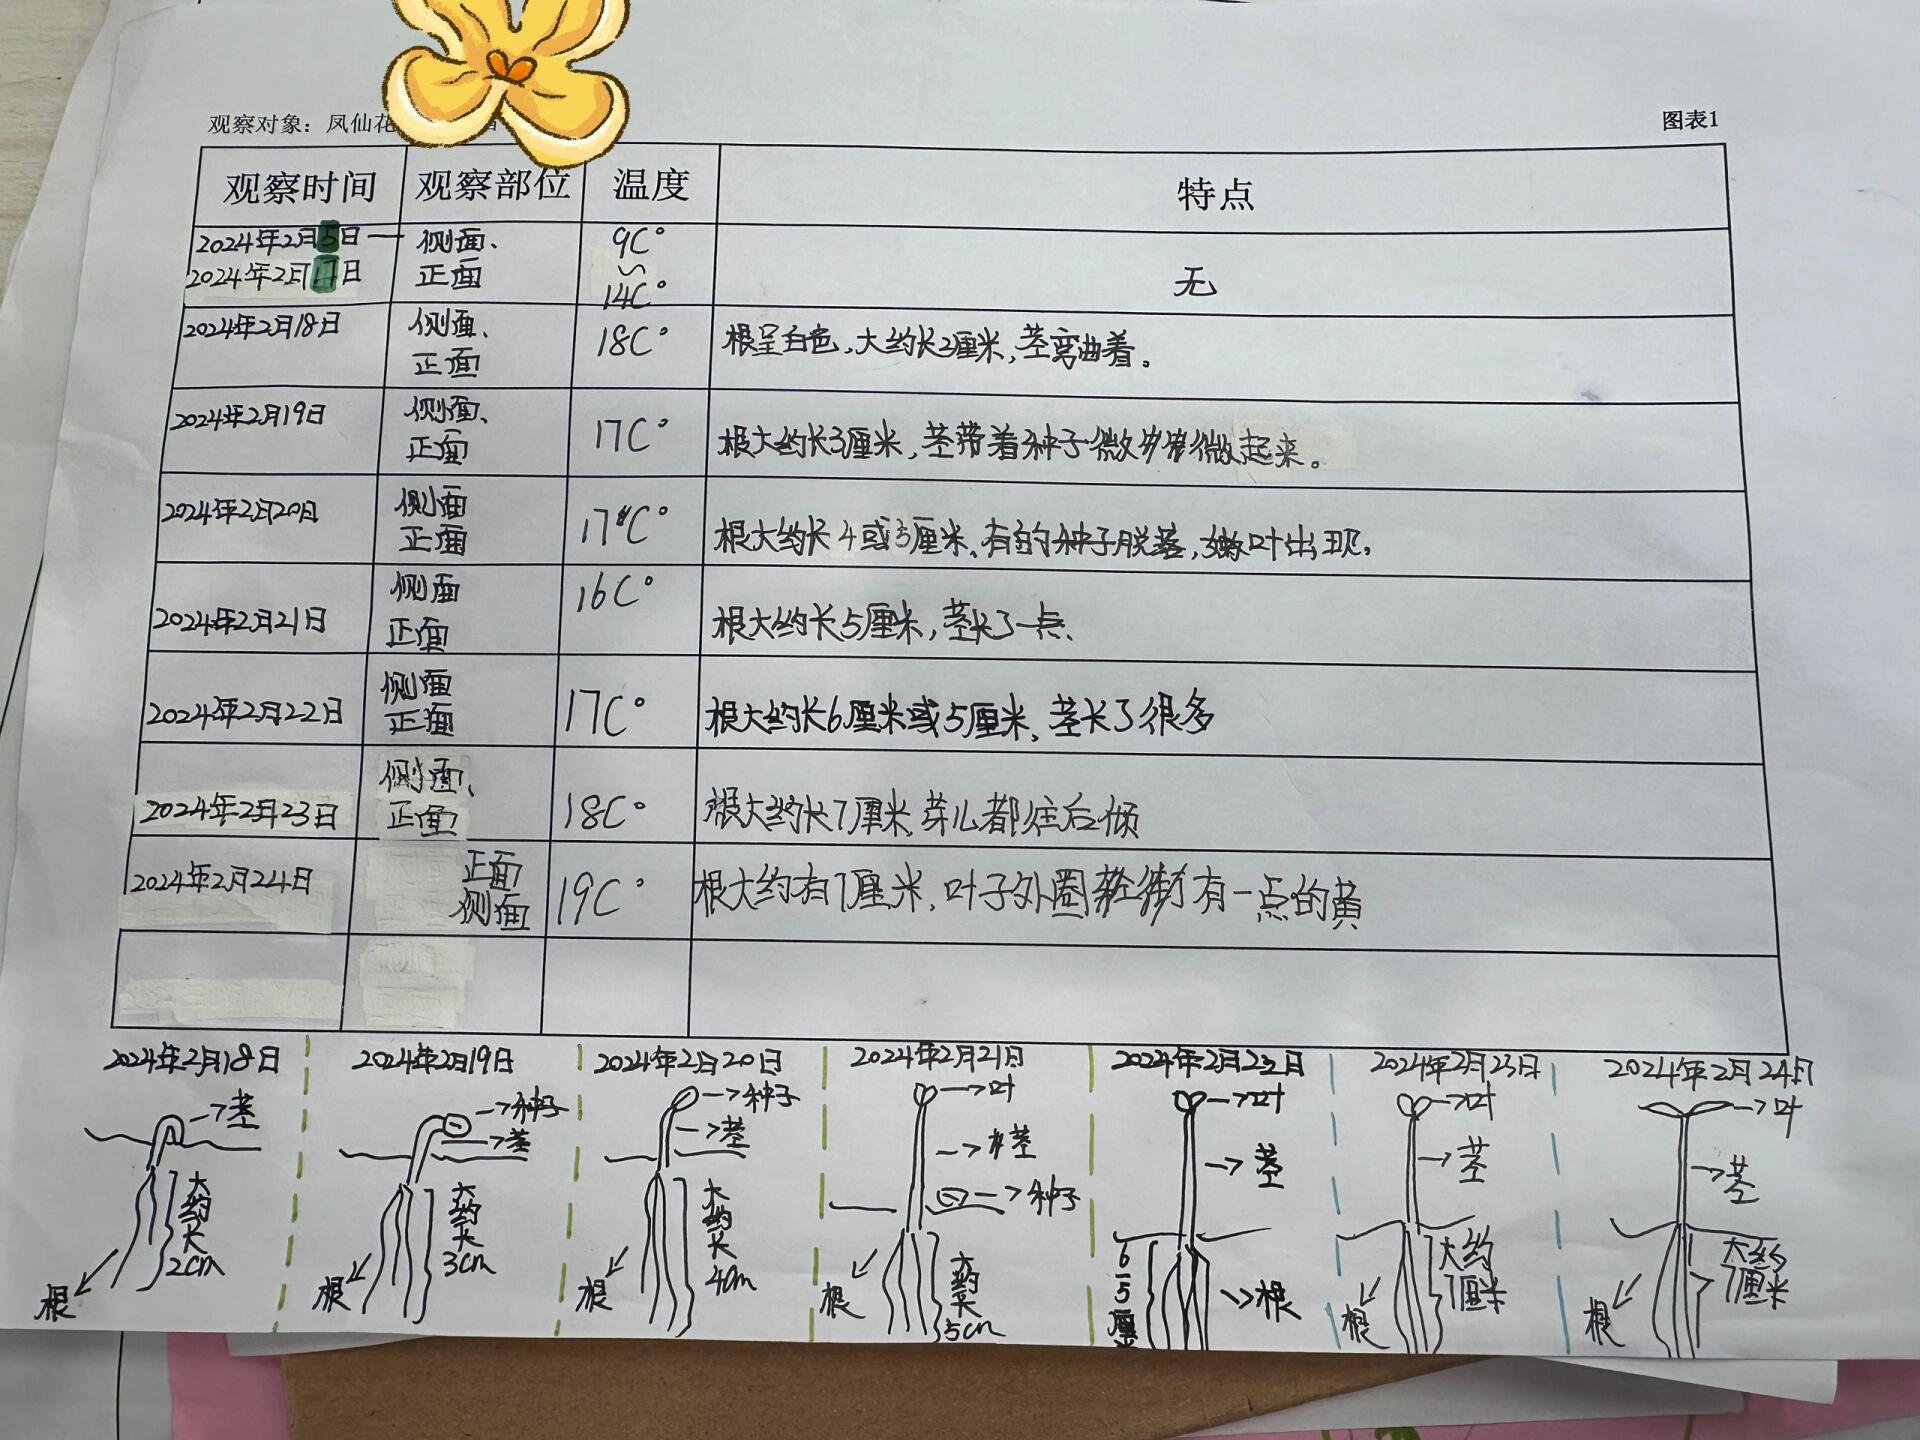 观察对象：凤仙花
图表1
观察时间 观察部位 温度 特点
2024年2月5日—2024年2月17日 侧面、正面 9C°~14C° 无
2024年2月18日 侧面、正面 18C° 根呈白色，大约长2厘米，茎弯曲着。
2024年2月19日 侧面、正面 17C° 根大约长3厘米，茎带着种子微微起来。
2024年2月20日 侧面 正面 17C° 根大约长4或5厘米，有的种子脱落，嫩叶出现。
2024年2月21日 侧面 正面 16C° 根大约长5厘米，茎长了一点、
2024年2月22日 侧面 正面 17C° 根大约长6厘米或5厘米，茎长了很多
2024年2月23日 侧面、正面 18C° 根大约长7厘米，芽儿都往后倾
2024年2月24日 正面 侧面 19C° 根大约有7厘米，叶子外圈有一点的黄
2024年2月18日 2024年2月19日 2024年2月20日 2024年2月21日 2024年2月22日 2024年2月23日 2024年2月24日
茎 大约长2cm 根
种子 茎 大约长3cm 根
种子 茎 大约长4cm 根
叶 茎 种子 大约长5cm 根
叶 茎 6-5厘米 根
叶 茎 大约7厘米 根
叶 茎 大约7厘米 根